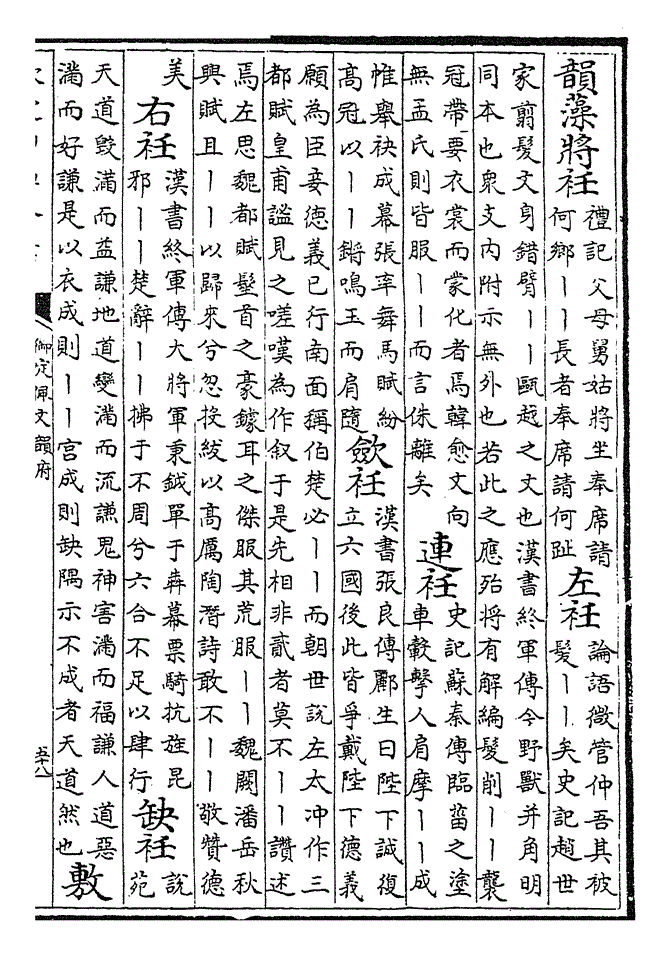 韻藻將衽
禮記父母舅姑將坐奉席請
何鄉丨丨長者奉席請何趾
左衽
論語微管仲吾其被
髮丨丨矣史記趙世
家翦髮文身錯臂丨丨甌越之文也漢書終軍傳今野獸并角明
同本也衆支内附示無外也若此之應殆將有解編髮削丨丨襲
冠帶要衣裳而蒙化者焉韓愈文向
無孟氏則皆服丨丨而言侏離矣
連衽
史記蘇秦傳臨菑之塗
車轂擊人肩摩丨丨成
惟舉袂成幕張率舞馬賦紛
高冠以丨丨鏘鳴玉而肩隨
歛衽
漢書張良傳酈生曰陛下誠復
立六國後此皆爭戴陛下德義
願為臣妾德義已行南面稱伯楚必丨丨而朝世說左太冲作三
都賦皇甫謐見之嗟嘆為作叙于是先相非貳者莫不丨丨讚述
焉左思魏都賦髽首之豪鐻耳之傑服其荒服丨丨魏闕潘岳秋
興賦且丨丨以歸來兮忽投紱以高厲陶潛詩敢不丨丨敬贊德
美
右衽
漢書終軍傳大將軍秉鉞單于犇幕票騎抗旌昆
邪丨丨楚辭丨丨拂于不周兮六合不足以肆行
缺衽
說
苑
天道毁滿而益謙地道變滿而流謙鬼神害滿而福謙人道惡
滿而好謙是以衣成則丨丨宮成則缺隅示不成者天道然也
敷
御定佩文韻府
五十八